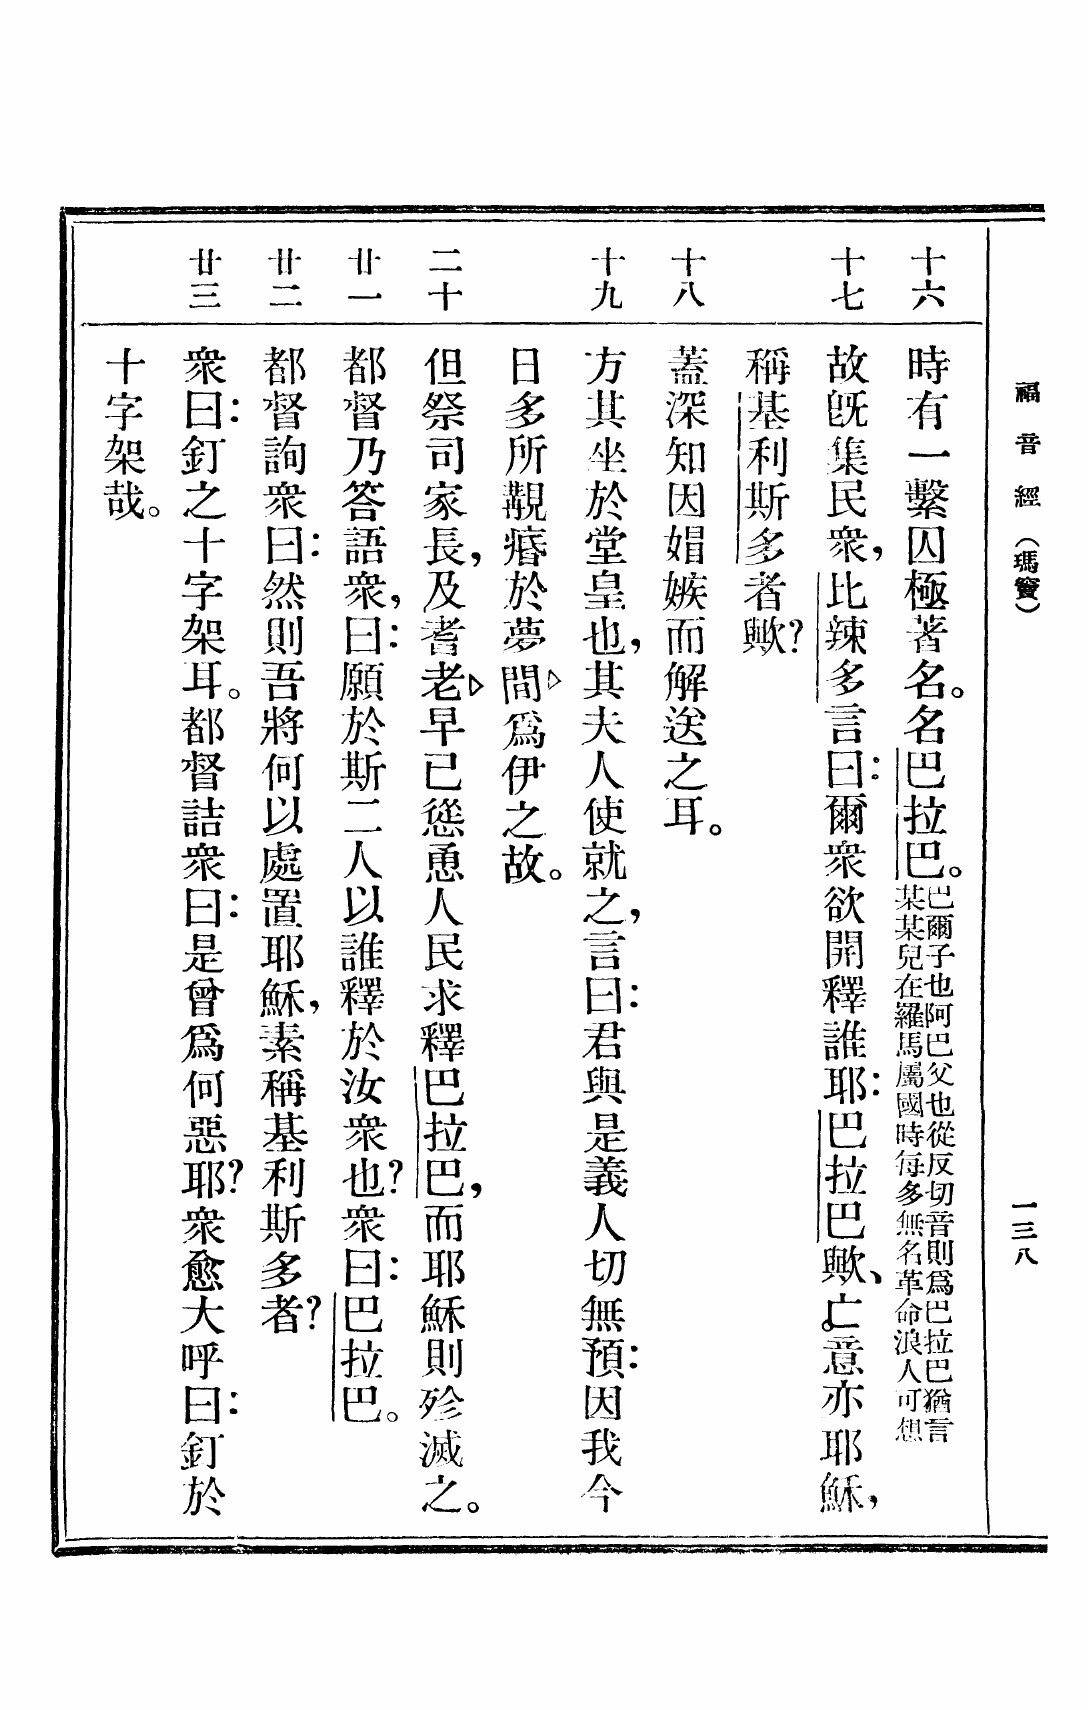 福音經（瑪竇）
一三八
十六
時有一繫囚極著名。名巴拉巴。巴爾子也阿巴父也從反切音則爲巴拉巴猶言
某某兒在羅馬屬國時每多無名革命浪人可想
十七
故旣集民衆，比辣多言曰：爾衆欲開釋誰耶：巴拉巴歟、亡意亦耶穌，
稱基利斯多者歟？
十八
蓋深知因媢嫉而解送之耳。
十九
方其坐於堂皇也，其夫人使就之，言曰：君與是義人切無預：因我今
日多所覯瘩於夢間▷爲伊之故。
二十
但祭司家長，及耆老▷早已慫恿人民求釋巴拉巴，而耶穌則殄滅之。
廿一
都督乃答語衆，曰：願於斯二人以誰釋於汝衆也？衆曰：巴拉巴。
廿二
都督詢衆曰：然則吾將何以處置耶穌，素稱基利斯多者？
廿三
衆曰：釘之十字架耳。都督詰衆曰：是曾爲何惡耶？衆愈大呼曰：釘於
十字架哉。